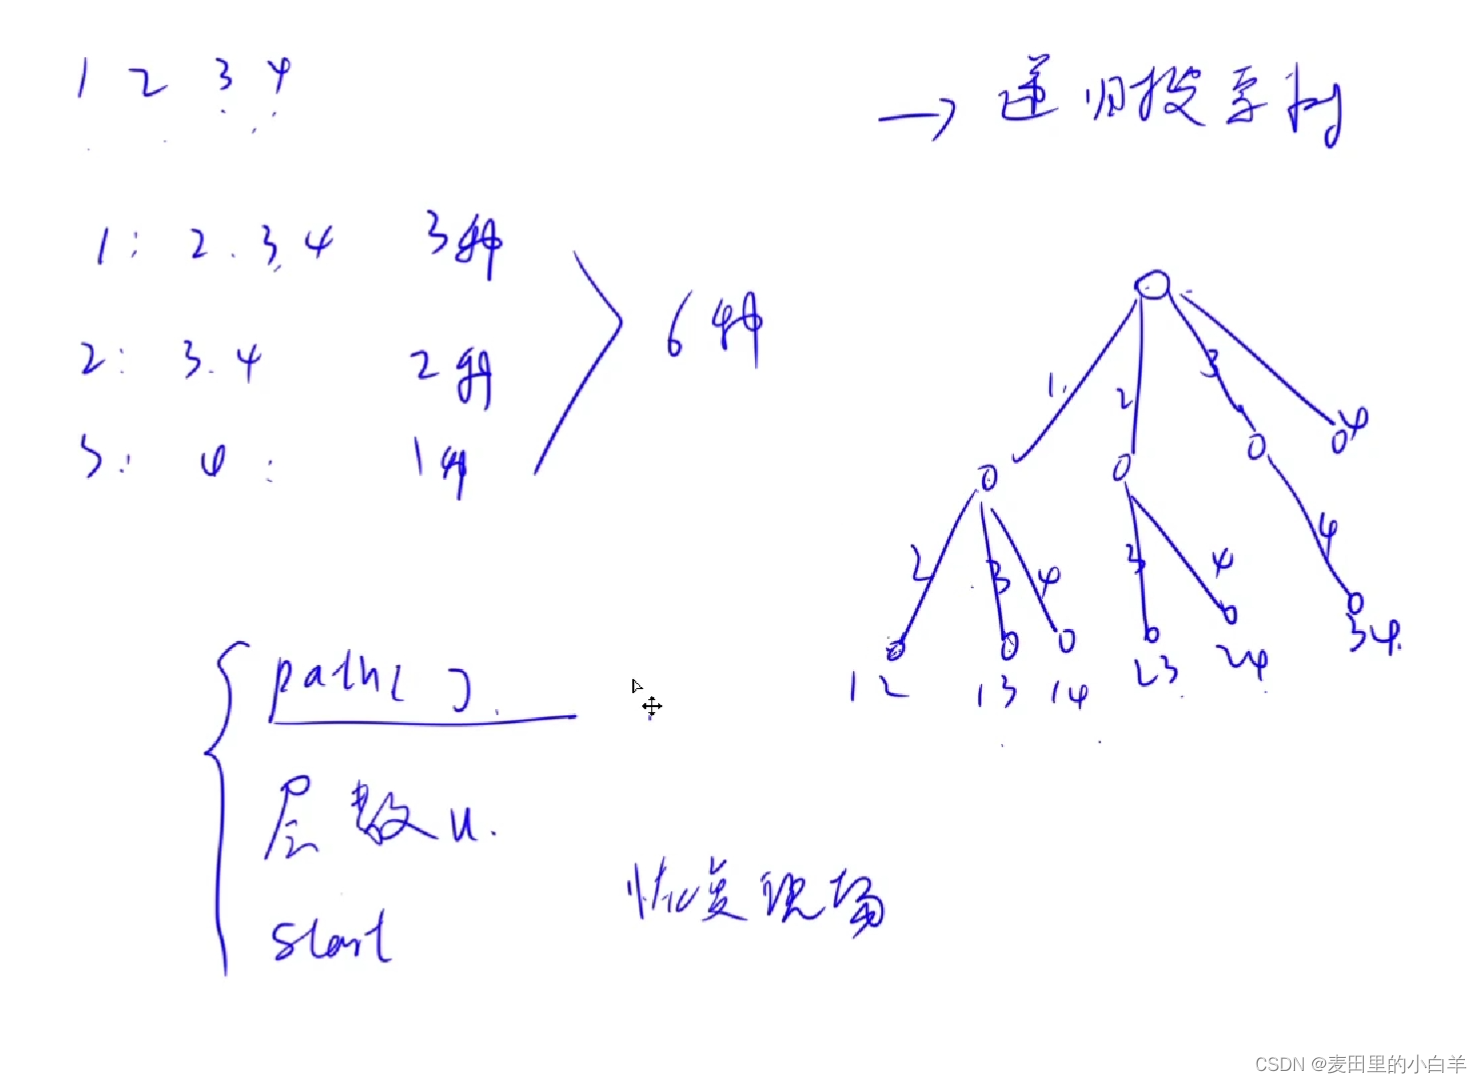 1 2 3 4
→ 递归搜索树
1: 2.3.4 3种
2: 3.4 2种
3: 4: 1种
6种
1. 2 3 4
2 3 4 3 4 4
12 13 14 23 24 34.
path[ ].
层数u.
start
恢复现场
CSDN @麦田里的小白羊